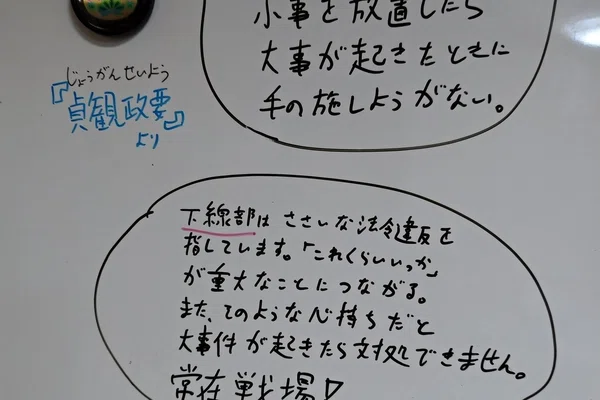 小事を放置したら
大事が起きたときに
手の施しようがない。
じょうがんせいよう
『貞観政要』
より
下線部は ささいな法令違反を
指しています。「これくらいいっか」
が重大なことにつながる。
また、そのような心持ちだと
大事件が起きたら対処できません。
常在戦場!